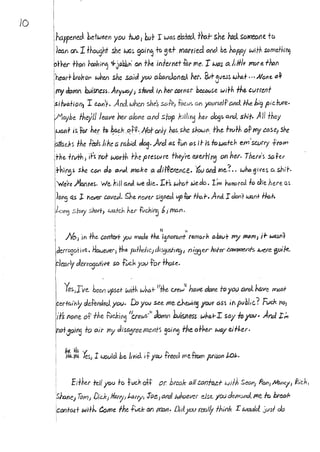 10
happened between you two, but I was elated that she had someone to
lean on. I thought she was going to get married and be happy with something
other than looking & jabbin' on the internet for me. I was a little more than
heart broken when she said you abandoned her. But guess what... None of
my damn business. Anyway, stand in her corner because with the current
situation, I can't. And when she's safe, focus on yourself and the big picture.
Maybe they'll leave her alone and stop killing her dogs and shit. All they
want is for her to back off. Not only has she shown the truth of my case, she
attacks the feds like a rabid dog. And as fun as it is to watch em' scurry from
the truth, it's not worth the pressure they're exerting on her. There's safer
things she can do and make a difference. You and me?... who gives a shit.
We're Marines. We kill and we die. It's what we do. I'm honored to die here as
long as I never caved. She never signed up for that. And I don't want that.
Long story short, watch her fucking 6, man.
No, in the context you made the "ignorant" remark about my mom, it wasn't
derrogative. However, the pathetic, disgusting, nigger lover comments were quite
clearly derrogative so fuck you for those.
Yes, I've been upset with what "the crew" have done to you and have most
certainly defended you. Do you see me chewing your ass in public? Fuck no,
it's none of the fucking "crews" damn business what I say to you. And I'm
not going to air my disagreements going the other way either.
Yes, I would be livid if you freed me from prison LOL.
Either tell you to fuck off or break all contact with Sean, Pam, Nancy, Rich,
Shane, Tom, Dick, Harry, Larry, Joe, and whoever else you demand me to break
contact with. Come the fuck on man. Did you really think I would just do